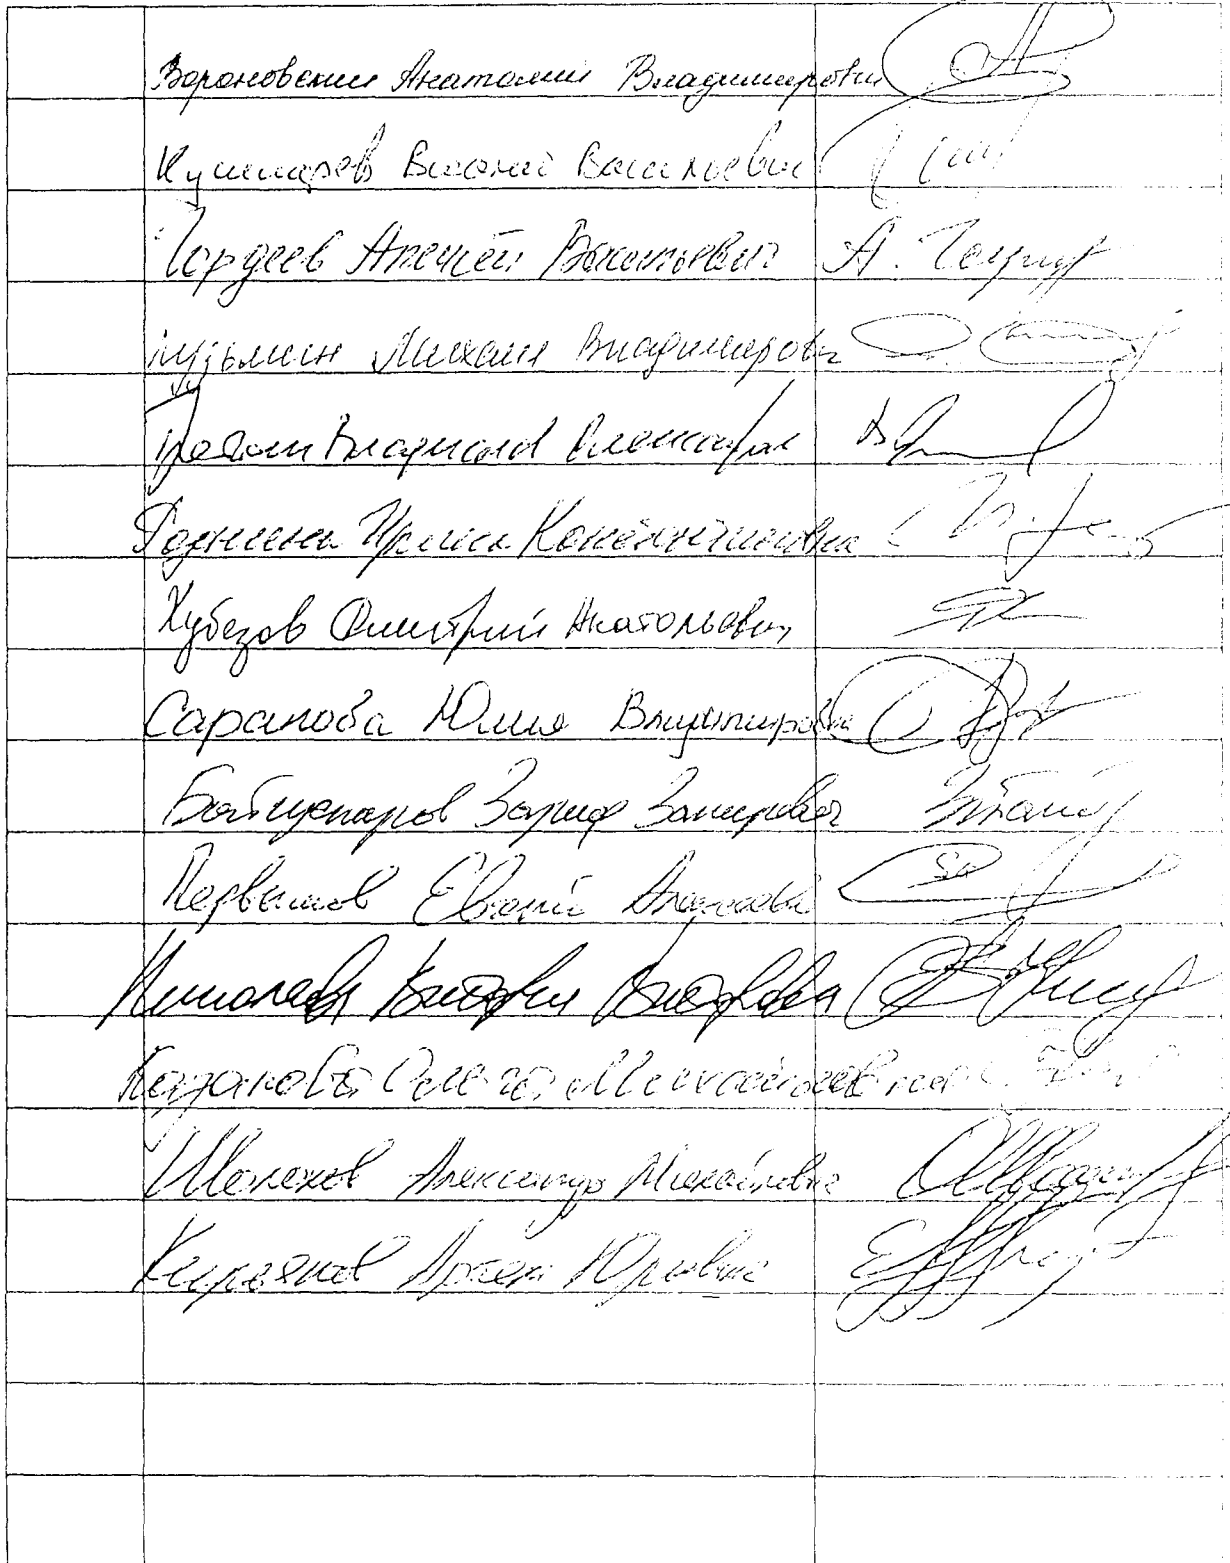 Вороновский Анатолий Владимирович
Кушнарев Виталий Васильевич
Гордеев Алексей Васильевич
Кузьмин Михаил Владимирович
Владислав Александрович
Роднина Ирина Константиновна
Хубезов Дмитрий Анатольевич
Саранова Юлия Владимировна
Байгускаров Зариф Закирович
Первышов Евгений Алексеевич
Николаева Виктория Викторовна
Казакова Ольга Михайловна
Шолохов Александр Михайлович
Кирьянов Артем Юрьевич